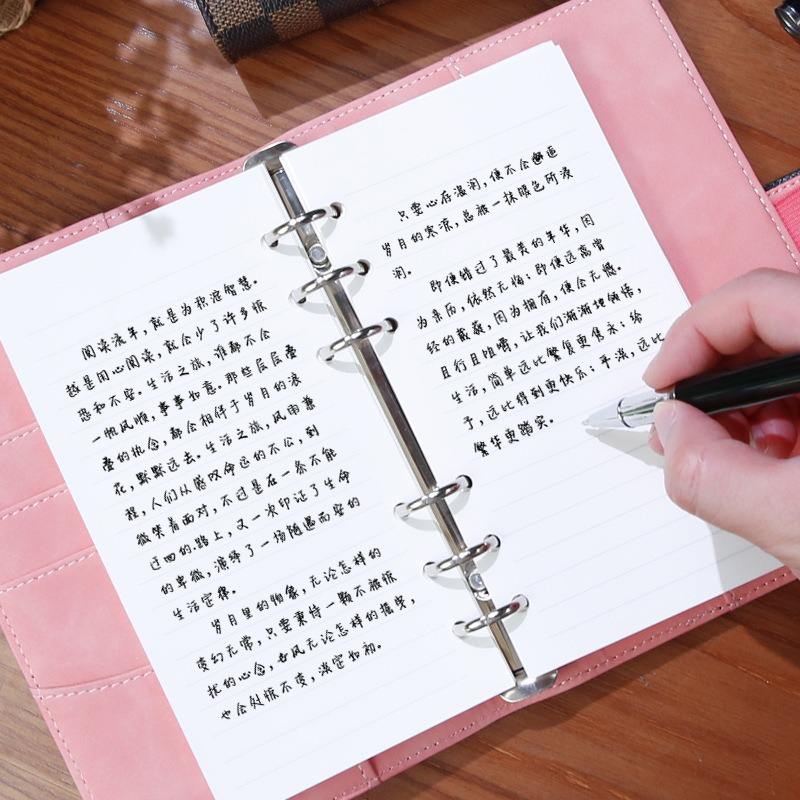 阅读流年，就是为我沉智慧。
越是用心阅读，就会少了许多惊
恐和不安。生活之旅，谁都不会
一帆风顺，事事如意。那些层层叠
叠的执念，都会相伴于岁月的浪
花，默默远去。生活之旅，风雨兼
程，人们从感叹命运的不公，到
微笑着面对，不过是在一条不能
过四的.路上，又一次印证了生命
的卑微，演绎了一场随遇而安的
生活定律。
岁月里的物象，无论怎样的
变幻无常，只要秉持一颗不被惊
扰的心念，香风无论怎样的摇曳，
也会处惊不变，淡定如初。
只要心存温润，便不会邂逅
岁月的寒凉，总被一抹暖色所浸
润。
即便错过了最美的年华，因
为亲历，依然无悔；即便远离曾
经的葳蕤，因为拥有，便会无憾。
且行且咀嚼，让我们渐渐地领悟，
生活，简单远比繁复更隽永；给
予，远比得到更快乐；平淡，远比
繁华更踏实。